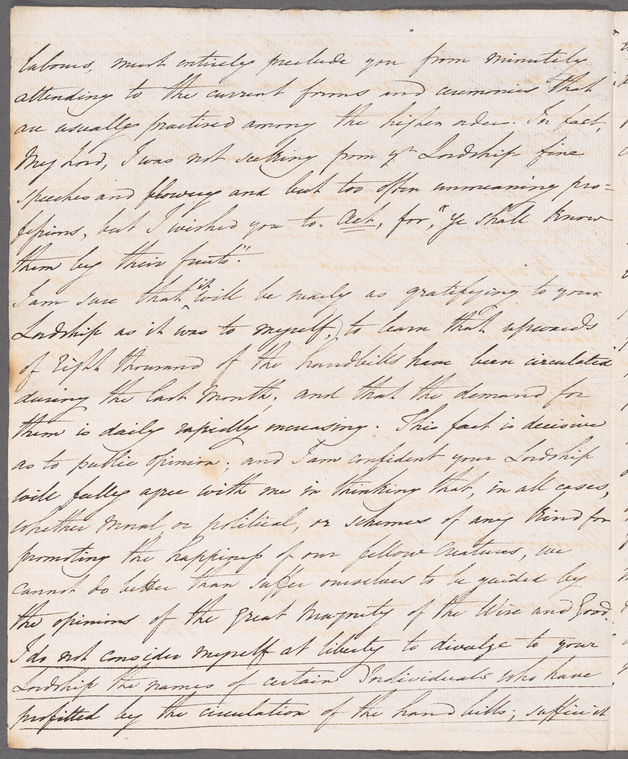 labours, must entirely preclude you from minutely
attending to the current forms and ceremonies that
are usually practised among the higher orders. In fact,
My Lord, I was not seeking from yr. Lordship fine
speeches and flowery and but too often unmeaning pro=
fessions, but I wished you to. Act, for, "Ye shall know
them by their fruits".
I am sure that it will be nearly as gratifying to your
Lordship as it was to myself, to learn that upwards
of Eight thousand of the handbills have been circulated
during the last Month; and that the demand for
them is daily rapidly increasing. This fact is decisive
as to public opinion; and I am confident your Lordship
will fully agree with me in thinking that, in all cases,
whether moral or political, or schemes of any kind for
promoting the happiness of our fellow Creatures, we
cannot do better than suffer ourselves to be guided by
the opinions of the Great Majority of the Wise and Good.
I do not consider myself at liberty to divulge to your
Lordship the names of certain Individuals who have
profitted by the circulation of the hand bills; suffice it